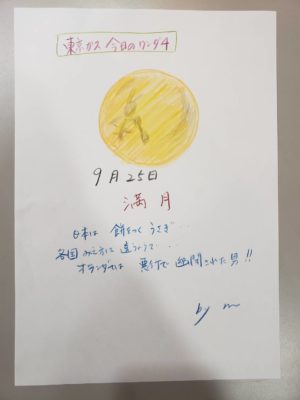 東京ガス 今日のワンダ4
9月25日
満月
日本は 餅をつく うさぎ・・
各国 みえ方に 違うようで・・・
オランダは 悪行で 幽閉された男!!
by m